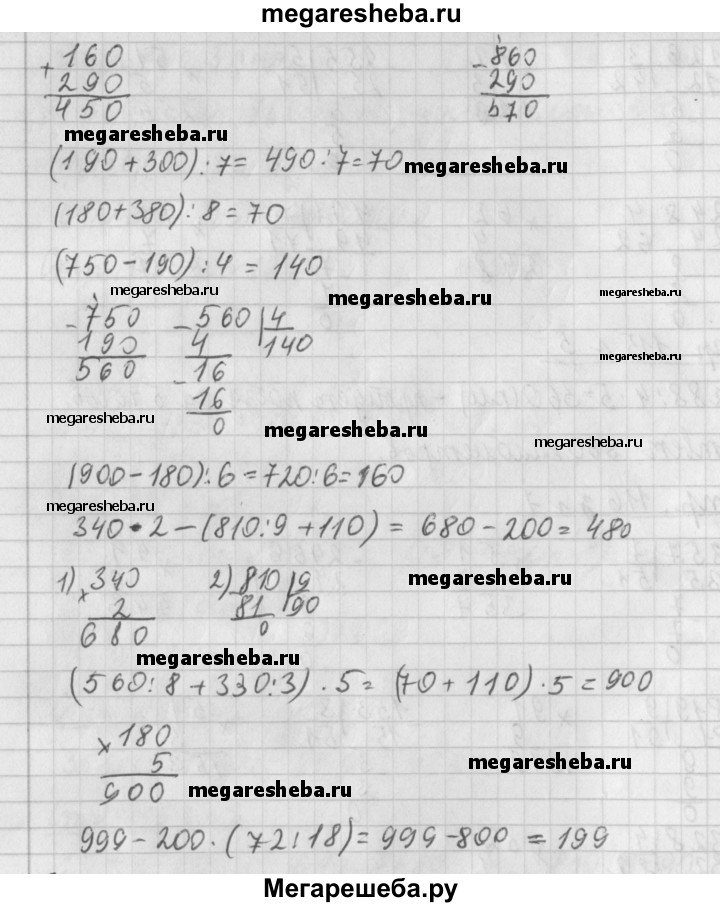 megaresheba.ru
+ 160 - 860
290 290
450 570
megaresheba.ru
(190+300):7= 490:7=70 megaresheba.ru
(180+380):8=70
(750-190):4=140
megaresheba.ru megaresheba.ru megaresheba.ru
- 750 - 560 4
190 4 140
560 - 16
16
megaresheba.ru 0 megaresheba.ru megaresheba.ru
(900-180):6=720:6=160
megaresheba.ru
340·2-(810:9+110)= 680-200=480
1) x 340 2) - 810 9 megaresheba.ru
2 81 90
680 0
megaresheba.ru
(560:8+330:3)·5= (70+110)·5=900
x 180
5 megaresheba.ru
900 megaresheba.ru
999-200·(72:18)=999-800=199
Мегарешеба.ру